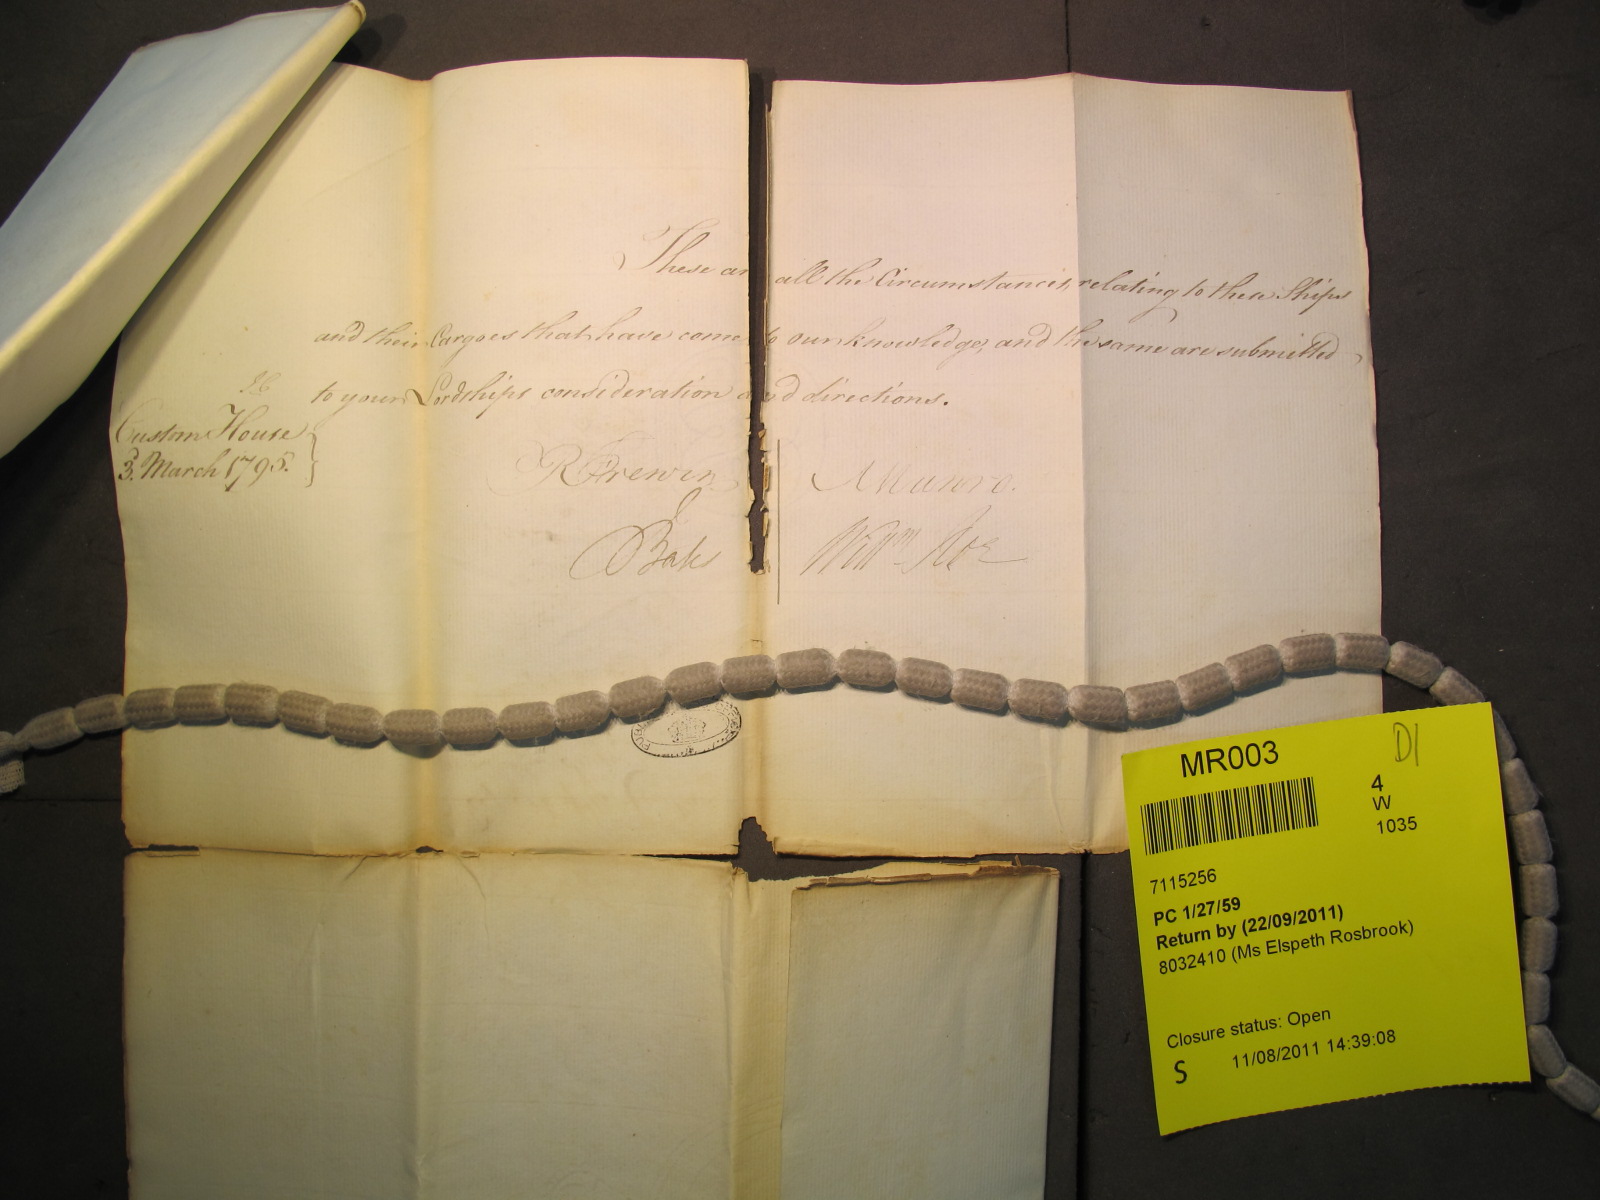 These are all the Circumstances relating to these Ships
and their Cargoes that have come to our knowledge, and the same are submitted
to your Lordships consideration and directions.
Custom House
3d. March 1795.
R Frewin
Munro.
Bates
Willm Roe
MR003
D1
4
W
1035
7115256
PC 1/27/59
Return by (22/09/2011)
8032410 (Ms Elspeth Rosbrook)
Closure status: Open
S 11/08/2011 14:39:08